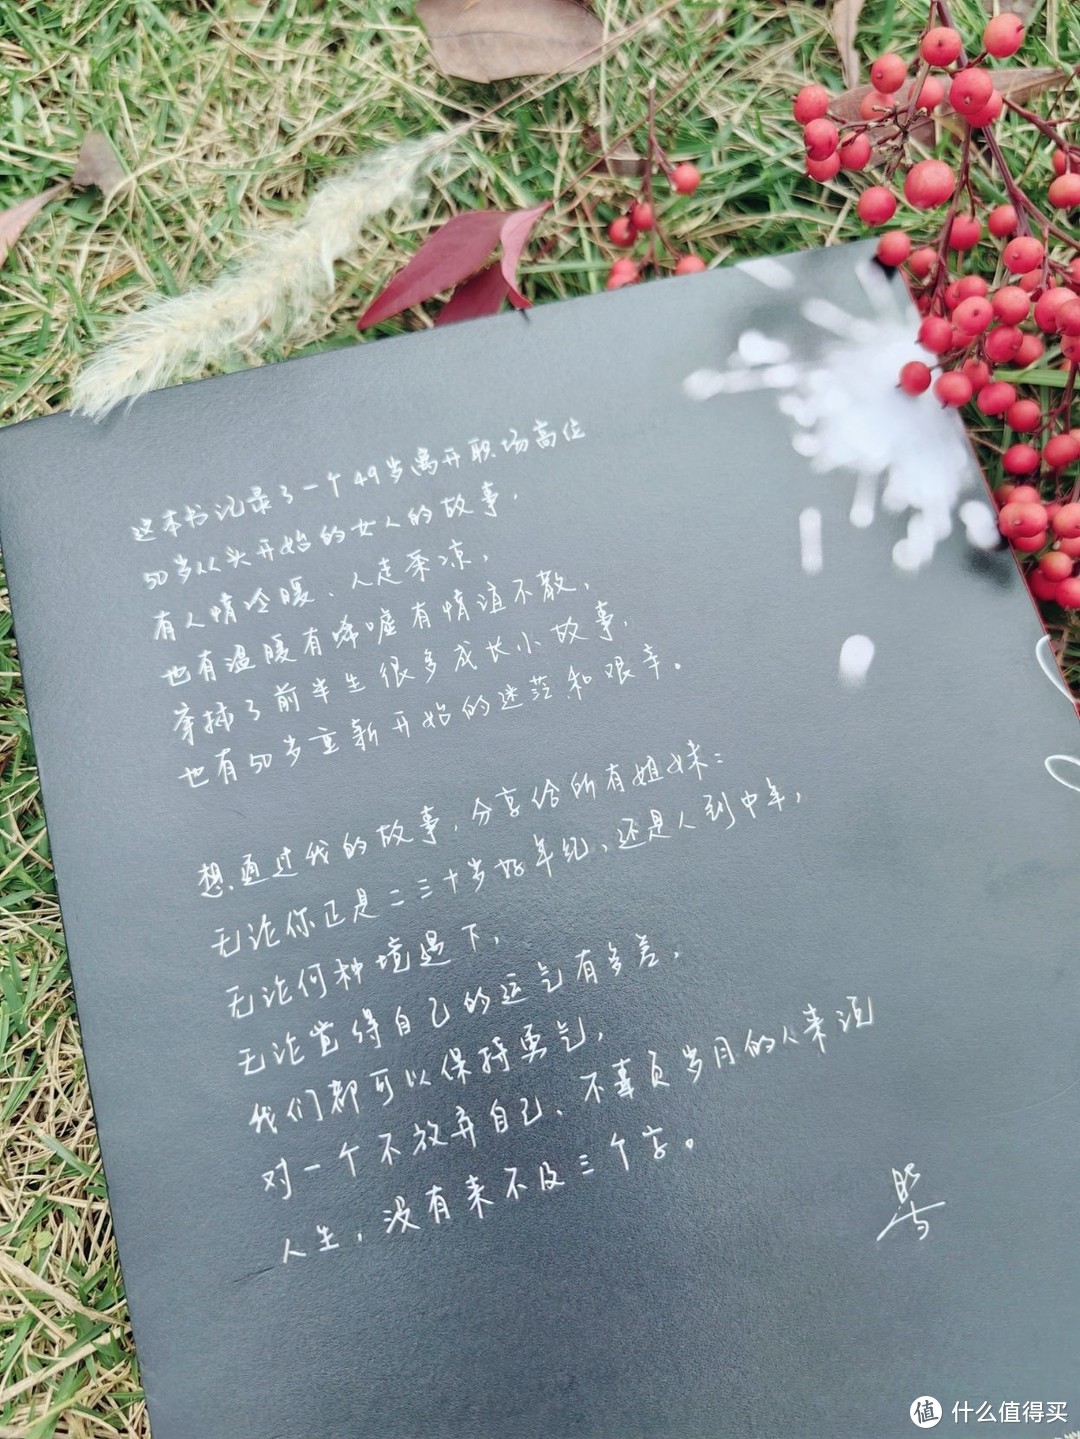 这本书记录了一个49岁离开职场高位
50岁从头开始的女人的故事，
有人情冷暖、人走茶凉，
也有温暖有唏嘘有情谊不散，
穿插了前半生很多成长小故事，
也有50岁重新开始的迷茫和艰辛。
想通过我的故事，分享给所有姐妹：
无论你正是二三十岁好年纪、还是人到中年，
无论何种境遇下，
无论觉得自己的运气有多差，
我们都可以保持勇气，
对一个不放弃自己、不辜负岁月的人来说
人生，没有来不及三个字。
值 什么值得买